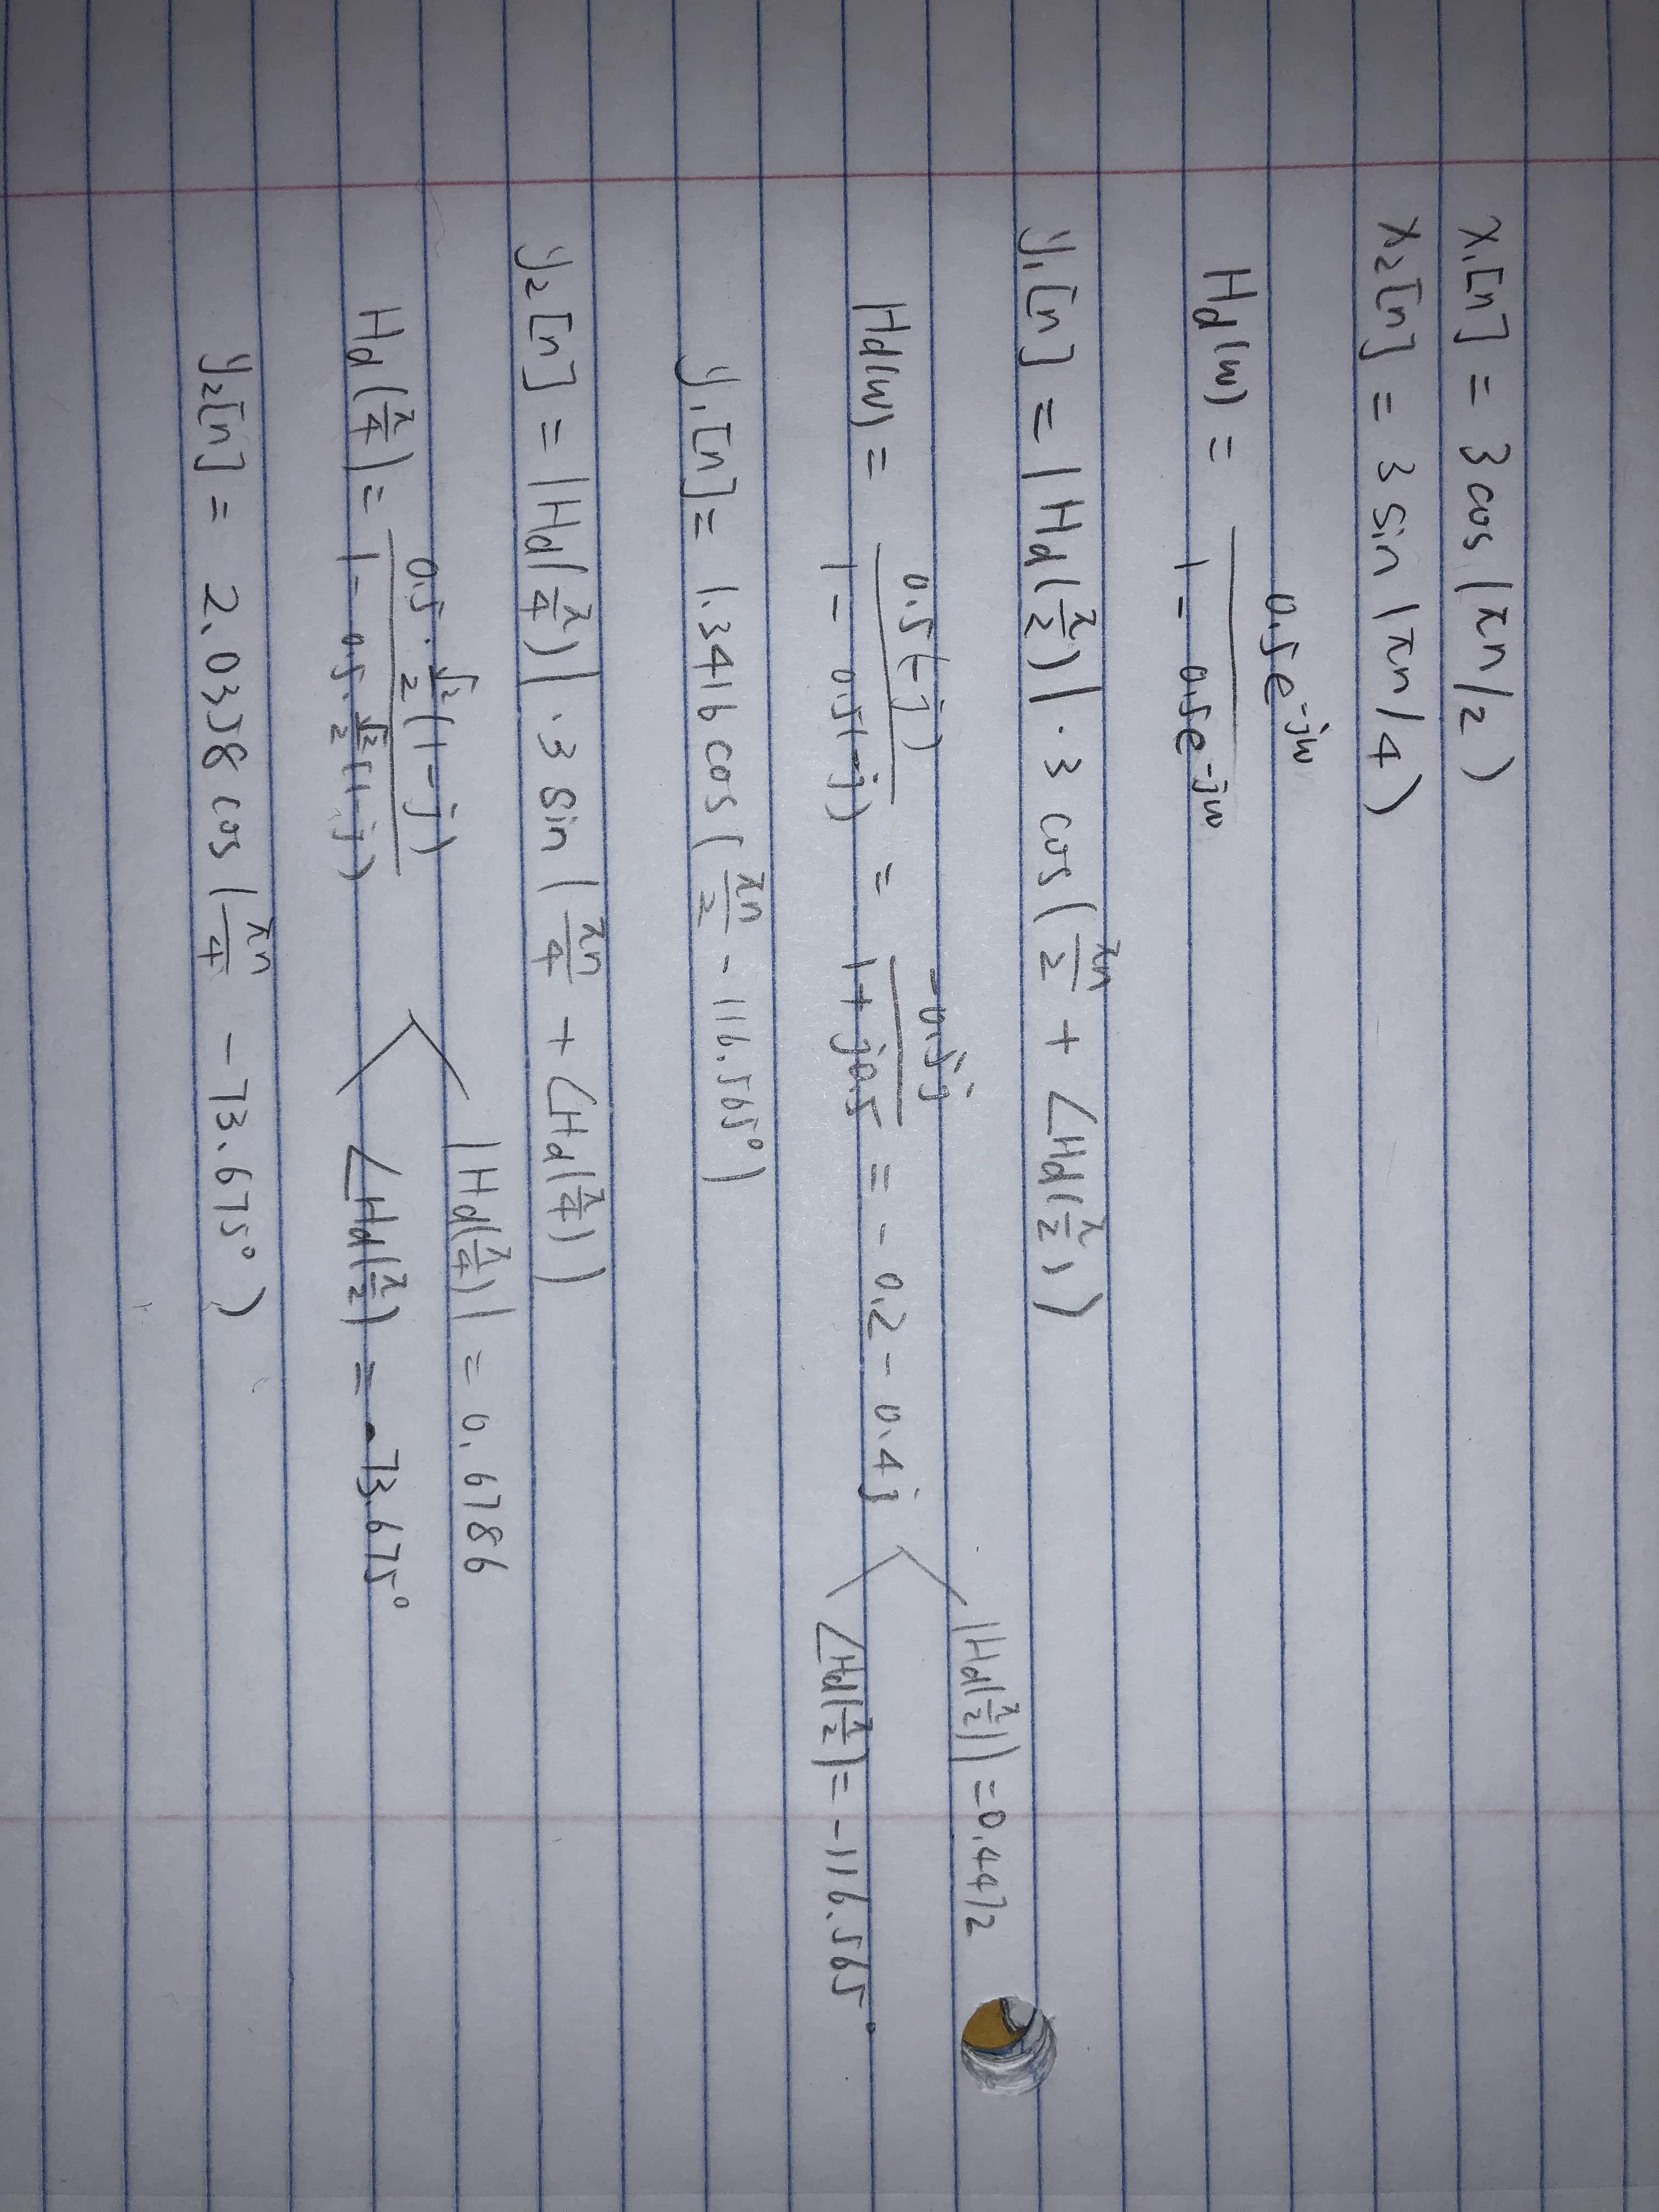 x₁[n] = 3 cos (πn/2)
x₂[n] = 3 sin (πn/4)
Hd(w) = 0.5e^-jw / 1 - 0.5e^-jw
y₁[n] = |Hd(π/2)| · 3 cos (πn/2 + ∠Hd(π/2))
Hd(w) = 0.5(-j) / 1 - 0.5(-j) = -0.5j / 1 + j0.5 = -0.2 - 0.4j
|Hd(π/2)| = 0.4472
∠Hd(π/2) = -116.565°
y₁[n] = 1.3416 cos (πn/2 - 116.565°)
y₂[n] = |Hd(π/4)| · 3 sin (πn/4 + ∠Hd(π/4))
Hd(π/4) = 0.5 · √2/2 (1-j) / 1 - 0.5 · √2/2 (1-j)
|Hd(π/4)| = 0.6786
∠Hd(π/2) = -73.675°
y₂[n] = 2.0358 cos (πn/4 - 73.675°)